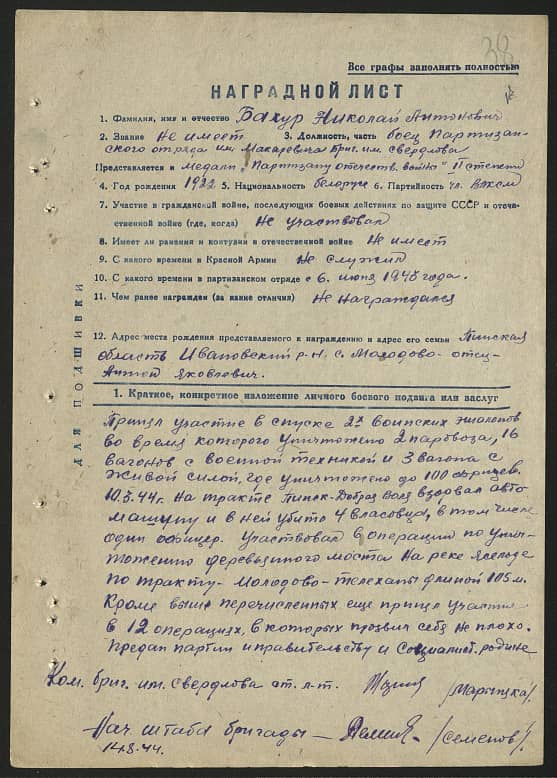 38
Все графы заполнять полностью
НАГРАДНОЙ ЛИСТ
1. Фамилия, имя и отчество Бахур Николай Антонович
2. Звание Не имеет 3. Должность, часть боец Партизан-
ского отряда им. Макаревича бриг. им. Свердлова
Представляется к Медали „Партизану отечеств. войны" II степени
4. Год рождения 1922 5. Национальность белорус 6. Партийность чл. ВЛКСМ
7. Участие в гражданской войне, последующих боевых действиях по защите СССР и отече-
ственной войне (где, когда) Не участвовал
8. Имеет ли ранения и контузии в отечественной войне Не имеет
9. С какого времени в Красной Армии Не служил
10. С какого времени в партизанском отряде с 6. июня 1943 года.
11. Чем ранее награжден (за какие отличия) Не награждался
12. Адрес места рождения представляемого к награждению и адрес его семьи Пинская
область Ивановский р-н. с. Молодово – отец –
Антон Яковлевич.
ДЛЯ ПОДШИВКИ
1. Краткое, конкретное изложение личного боевого подвига или заслуг
Принял участие в спуске 2х воинских эшалонов
во время которого уничтожено 2 паровоза, 16
вагонов с военной техникой и 3 вагона с
живой силой, где уничтожено до 100 фрицев.
10.3.44г. На тракте Пинск-Добрая Воля взорвал авто
машину и в ней убито 4 власовца, в том числе
один офицер. Участвовал в операции по унич-
тожению деревянного моста на реке Ясельде
по тракту – Молодово – телеханы длиной 105 м.
Кроме выше перечисленных еще принял участие
в 12 операциях, в которых проявил себя не плохо.
Предан партии и правительству и Социалист. родине
Ком. бриг. им. Свердлова ст. л-т.
Нач штаба бригады – /Семенов/.
14.8.44.